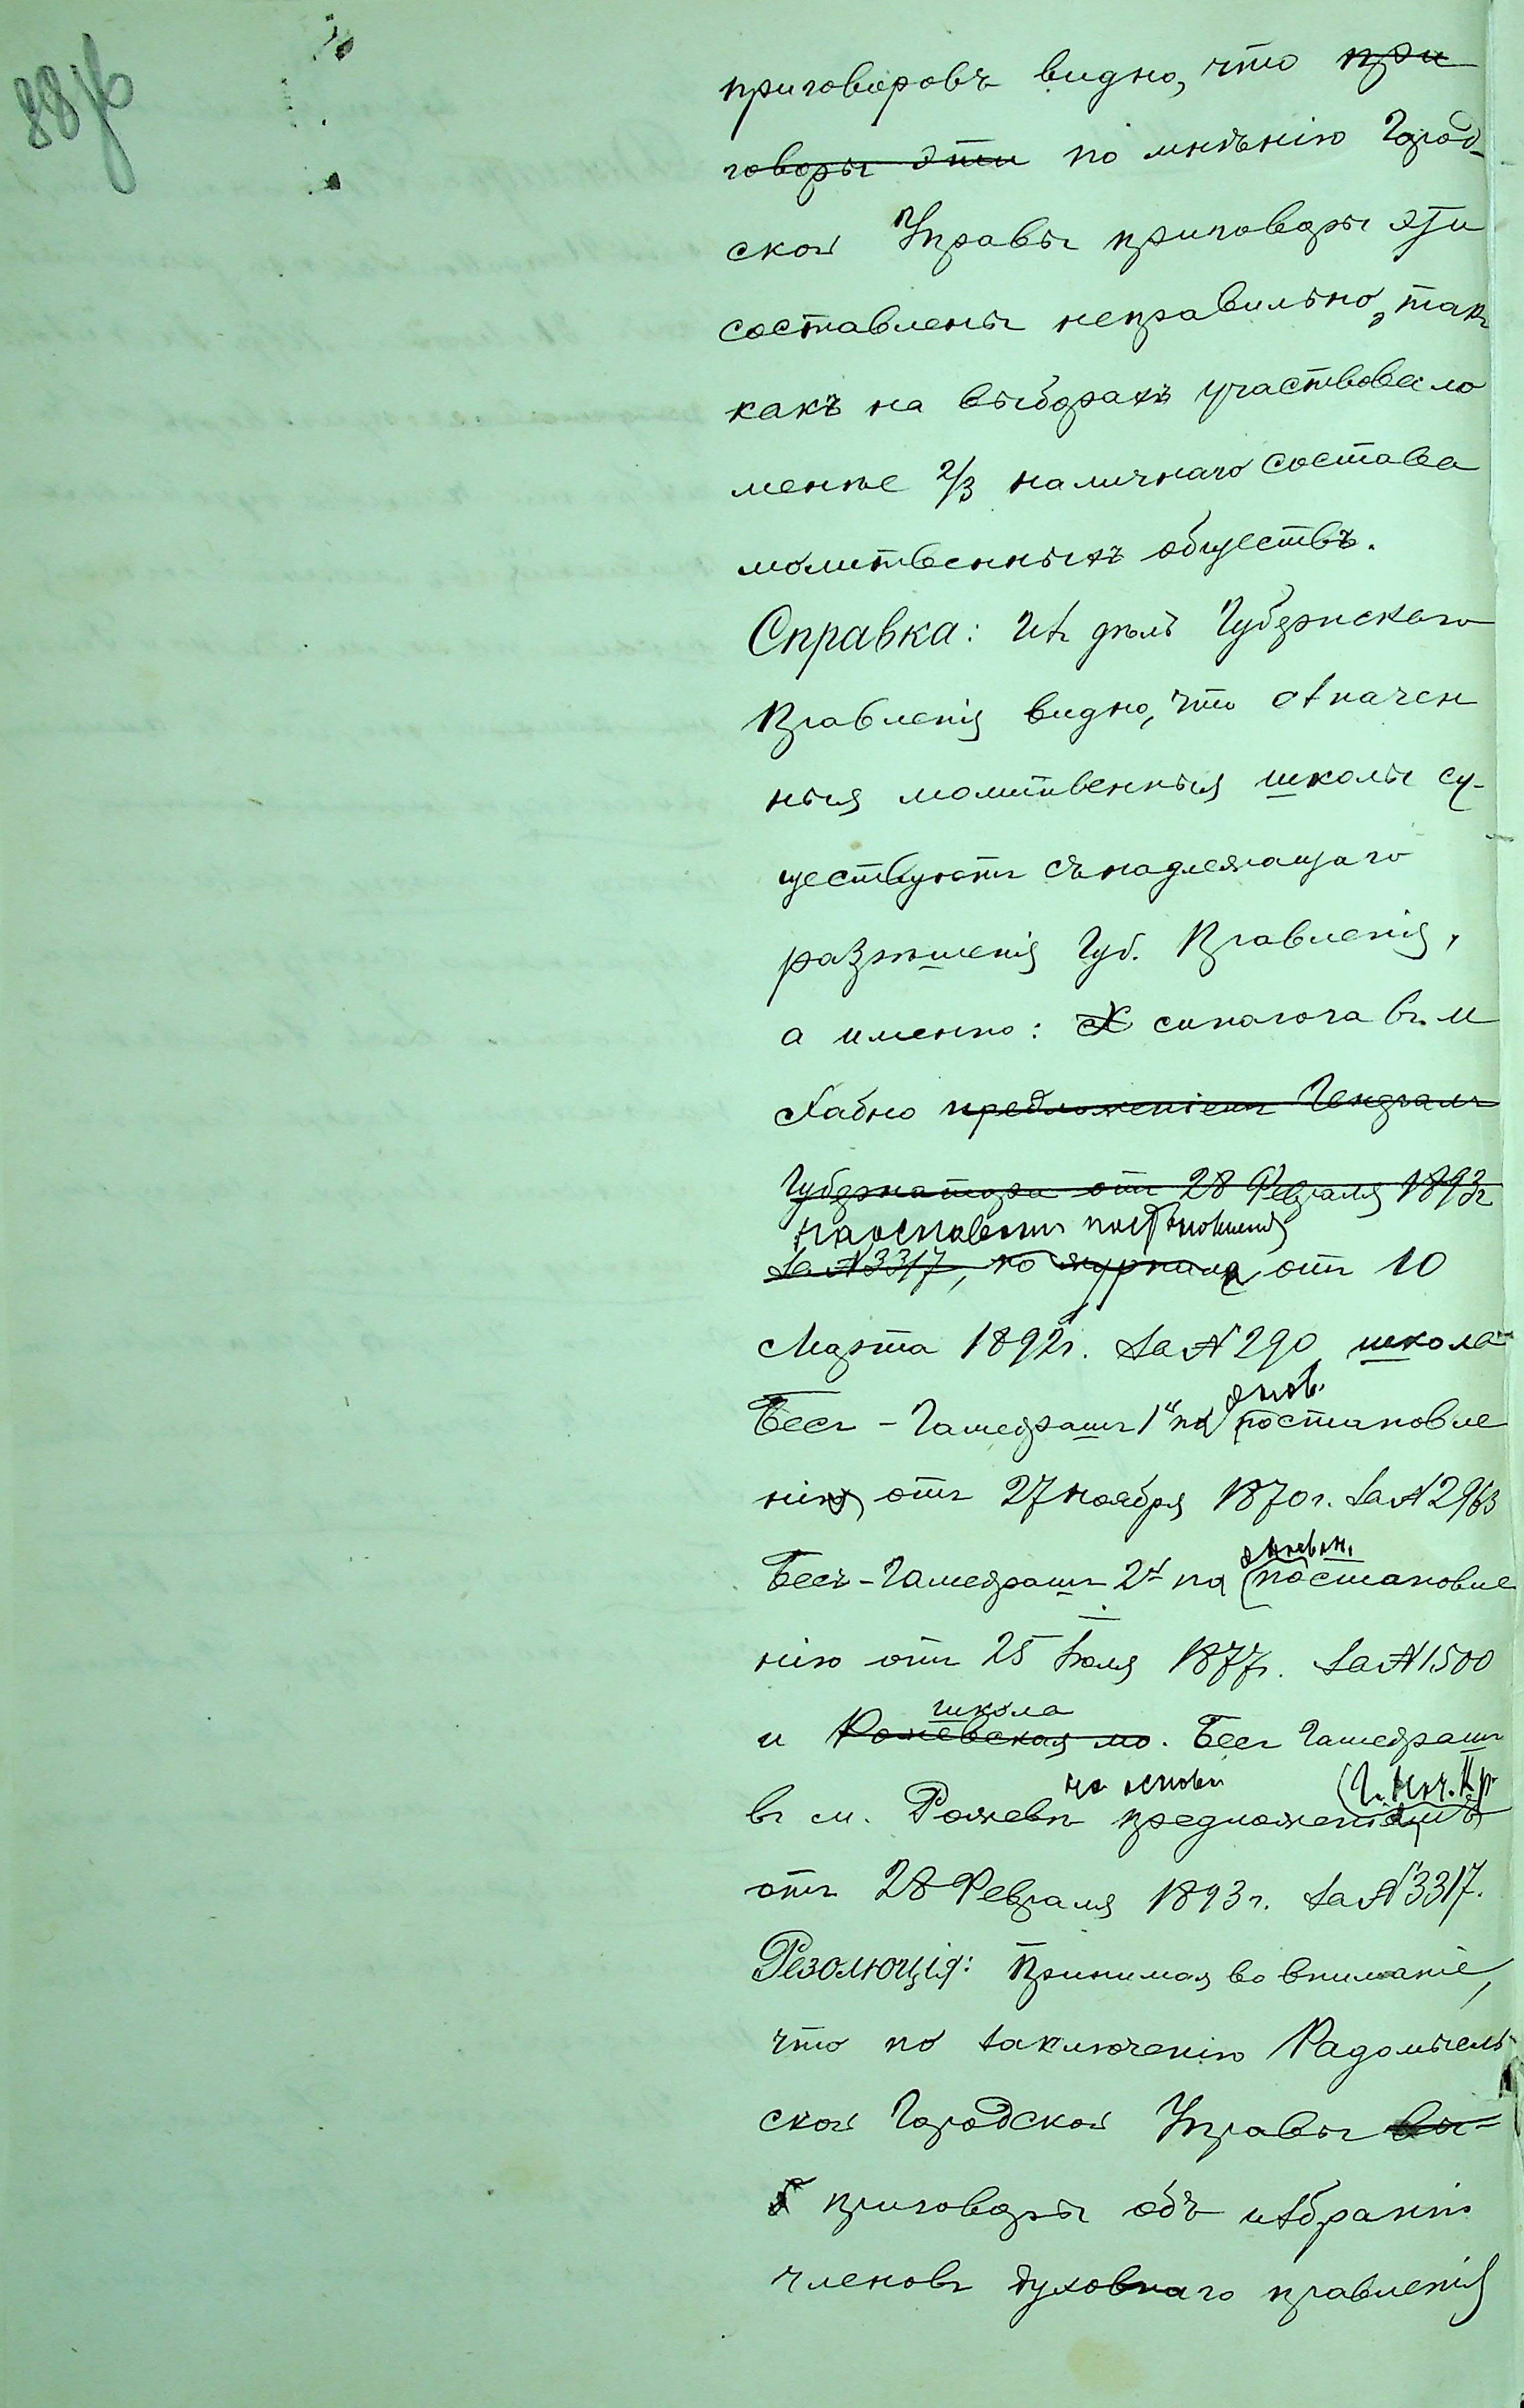 88об
приговоровъ видно, что при
говоры эти по мнѣнію Город-
ской Управы приговоры эти
составлены неправильно, такъ
какъ на выборахъ участвовало
менѣе 2/3 наличнаго состава
молитвенныхъ обществъ.
Справка: Изъ дѣлъ Губернскаго
Правленія видно, что означен
ныя молитвенныя школы су-
ществуютъ съ надлежащаго
разрѣшенія Губ. Правленія,
а именно: Х синагога въ м
Хабно предложеніемъ Генералъ
Губернатора отъ 28 Февраля 1893г
на основаніи постановленія
за №3317, по журналу отъ 10
Марта 1892г. за №290, школа
основ.
Бесъ-Гамедрашъ 1й на постановле
нія отъ 27 ноября 1870г. за №2963
основан.
Бесъ-Гамедрашъ 2й на постановле
нію отъ 25 Іюля 1877г. за №1500
школа
и Рожевская мо. Бесъ Гамедрашъ
на основан (Г. Нач. Кр.
въ м. Рожевѣ предложеніемъ
отъ 28 Февраля 1893г. за №3317.
Резолюція: Принимая во вниманіе,
что по заключенію Радомысль
ской Городской Управы вы-
б приговоры объ избраніи
членовъ духовнаго правленія